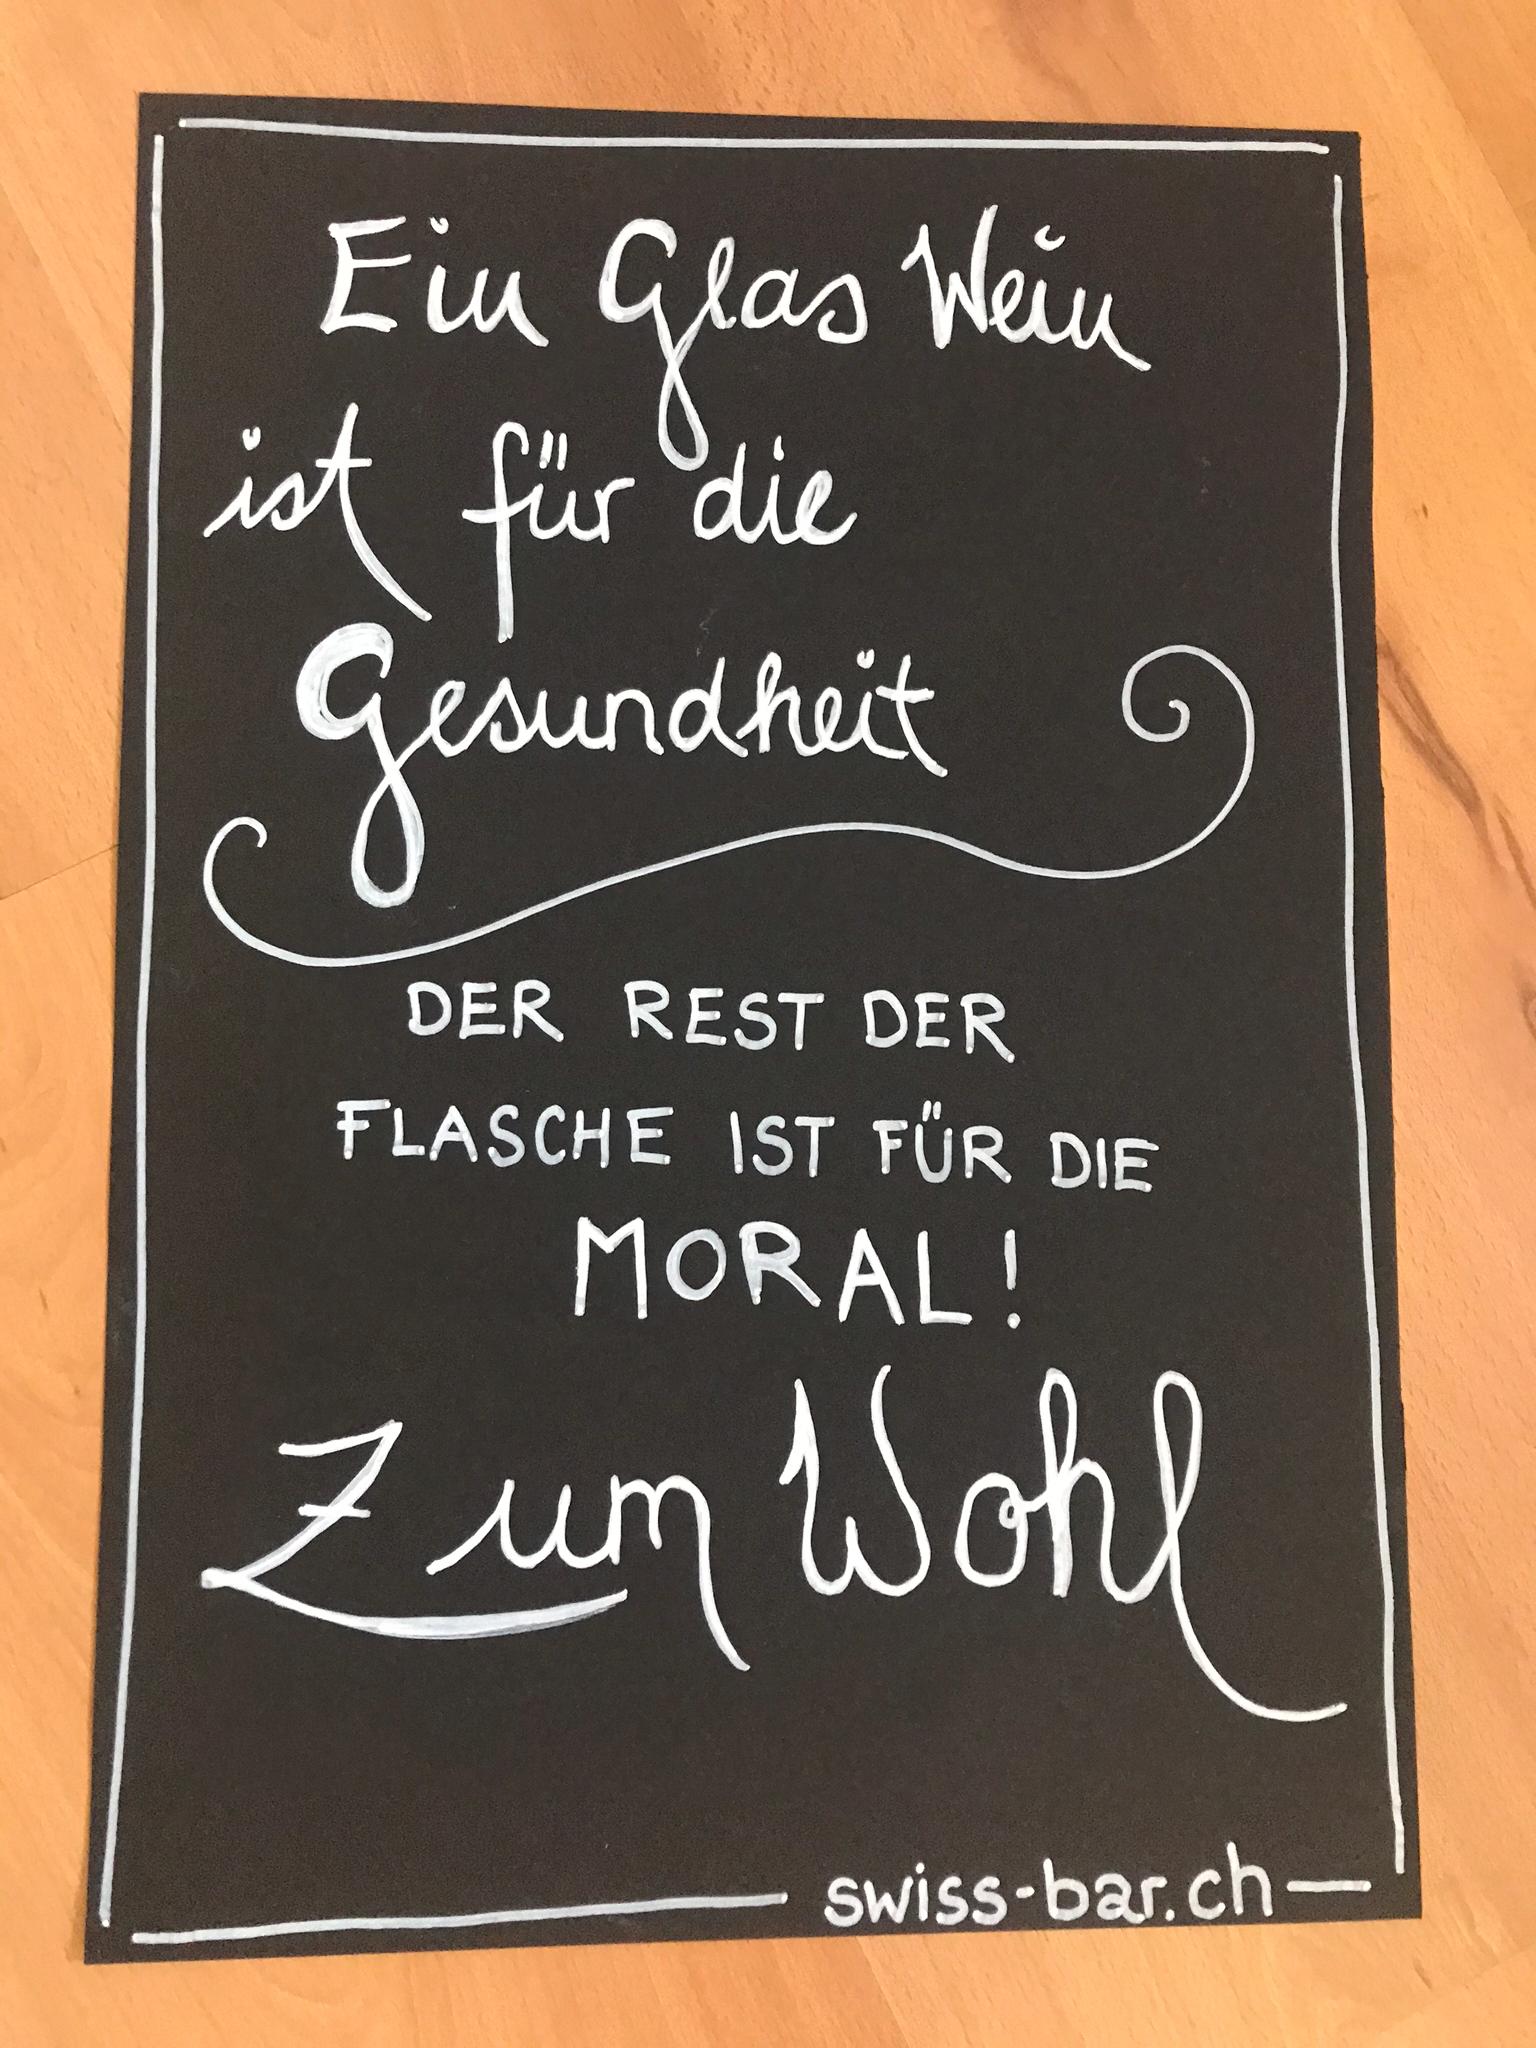 Ein Glas Wein
ist für die
Gesundheit
DER REST DER
FLASCHE IST FÜR DIE
MORAL!
Zum Wohl
swiss-bar.ch